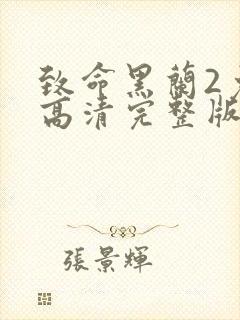 致命黑蘭2
高清完整版
張景輝